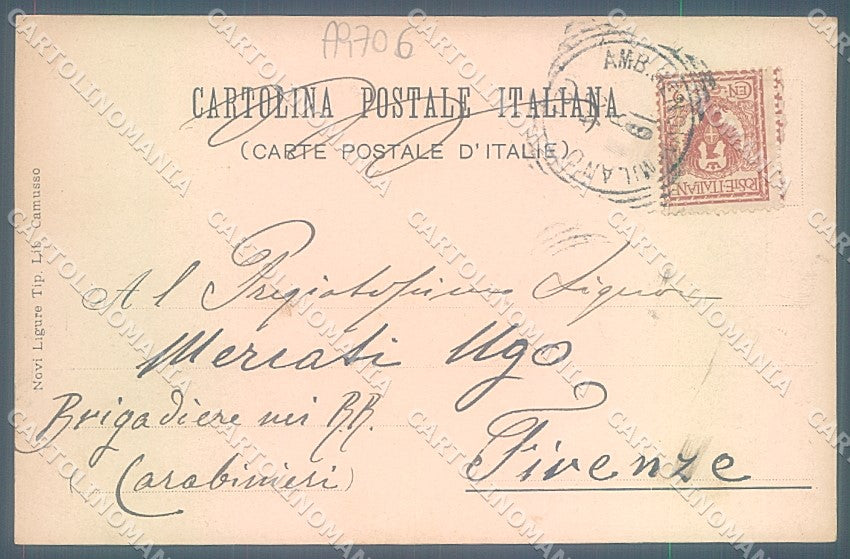 AR706
CARTOLINA POSTALE ITALIANA
(CARTE POSTALE D'ITALIE)
AMB.
MILANO
POSTE ITALIANE
Novi Ligure Tip. Lib. Camusso
Al Pregiatissimo Signor
Mercati Ugo
Brigadiere nei RR.
Carabinieri)
Firenze
CARTOLINOMANIA